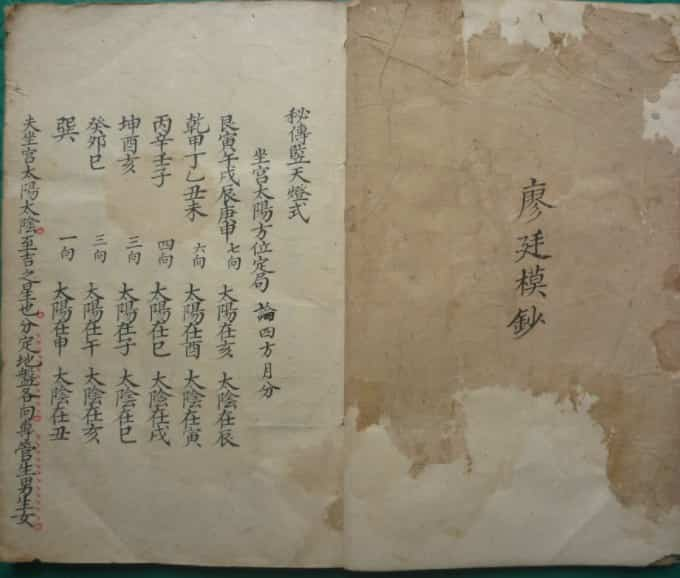 廖廷模鈔
秘傳豎天燈式
坐宮太陽方位定局 論四方月分
艮寅午戌辰庚申 七向 太陽在亥 太陰在辰
乾甲丁乙丑未 六向 太陽在酉 太陰在寅
丙辛壬子 四向 太陽在巳 太陰在戌
坤酉亥 三向 太陽在子 太陰在巳
癸卯巳 三向 太陽在午 太陰在亥
巽 一向 太陽在申 太陰在丑
夫坐宮太陽太陰至吉之星也分定地盤各向專管生男生女